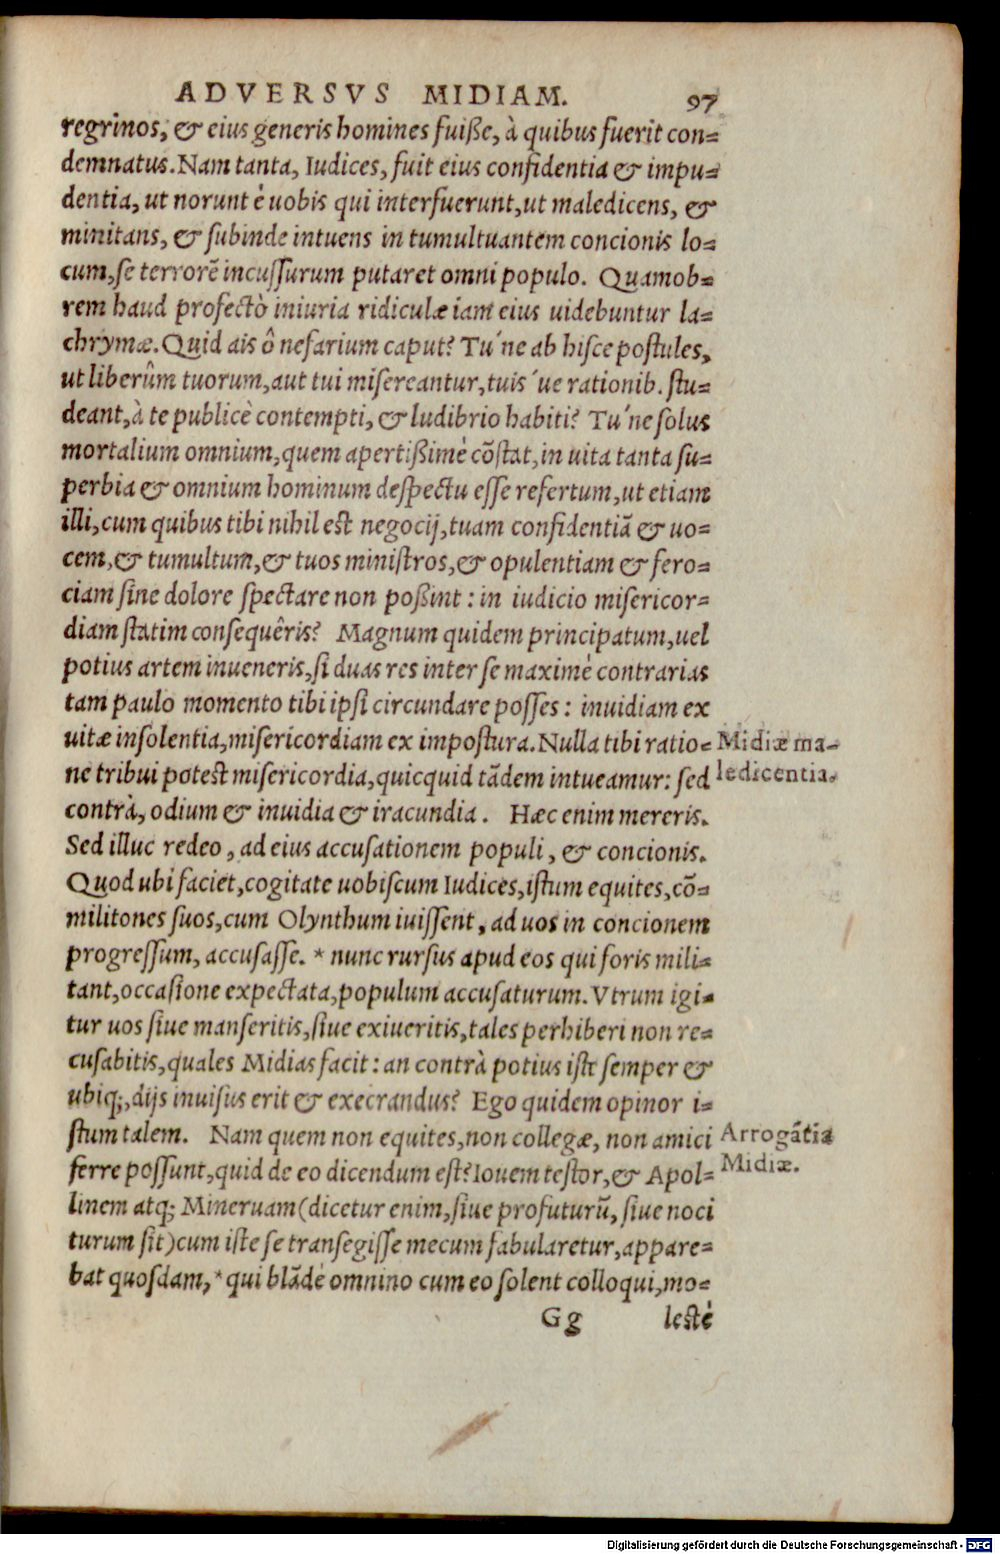 ADVERSVS MIDIAM. 97
regrinos, & eius generis homines fuiße, à quibus fuerit con-
demnatus. Nam tanta, Iudices, fuit eius confidentia & impu-
dentia, ut norunt è uobis qui interfuerunt, ut maledicens, &
minitans, & subinde intuens in tumultuantem concionis lo-
cum, se terrorẽ incussurum putaret omni populo. Quamob-
rem haud profectò iniuria ridiculæ iam eius uidebuntur la-
chrymæ. Quid ais ô nefarium caput? Tú ne ab hisce postules,
ut liberûm tuorum, aut tui misereantur, tuis ́ue rationib. stu-
deant, à te publicè contempti, & ludibrio habiti? Tú ne solus
mortalium omnium, quem apertißimè cõstat, in uita tanta su-
perbia & omnium hominum despectu esse refertum, ut etiam
illi, cum quibus tibi nihil est negocij, tuam confidentiã & uo-
cem, & tumultum, & tuos ministros, & opulentiam & fero-
ciam sine dolore spectare non poßint: in iudicio misericor-
diam statim consequêris? Magnum quidem principatum, uel
potius artem inueneris, si duas res inter se maximè contrarias
tam paulo momento tibi ipsi circundare posses: inuidiam ex
uitæ insolentia, misericordiam ex impostura. Nulla tibi ratio-
Midiæ ma-
ne tribui potest misericordia, quicquid tãdem intueamur: sed
ledicentia.
contrà, odium & inuidia & iracundia. Hæc enim mereris.
Sed illuc redeo, ad eius accusationem populi, & concionis.
Quod ubi faciet, cogitate uobiscum Iudices, istum equites, cõ-
militones suos, cum Olynthum iuissent, ad uos in concionem
progressum, accusasse. * nunc rursus apud eos qui foris mili-
tant, occasione expectata, populum accusaturum. Vtrum igi-
tur uos siue manseritis, siue exiueritis, tales perhiberi non re-
cusabitis, quales Midias facit: an contrà potius iste semper &
ubiq;, dijs inuisus erit & execrandus? Ego quidem opinor i-
stum talem. Nam quem non equites, non collegæ, non amici
Arrogãtia
ferre possunt, quid de eo dicendum est? Iouem testor, & Apol-
Midiæ.
linem atq; Mineruam (dicetur enim, siue profuturũ, siue noci
turum sit) cum iste se transegisse mecum fabularetur, appare-
bat quosdam, * qui blãdè omnino cum eo solent colloqui, mo-
Gg lestè
Digitalisierung gefördert durch die Deutsche Forschungsgemeinschaft - DFG